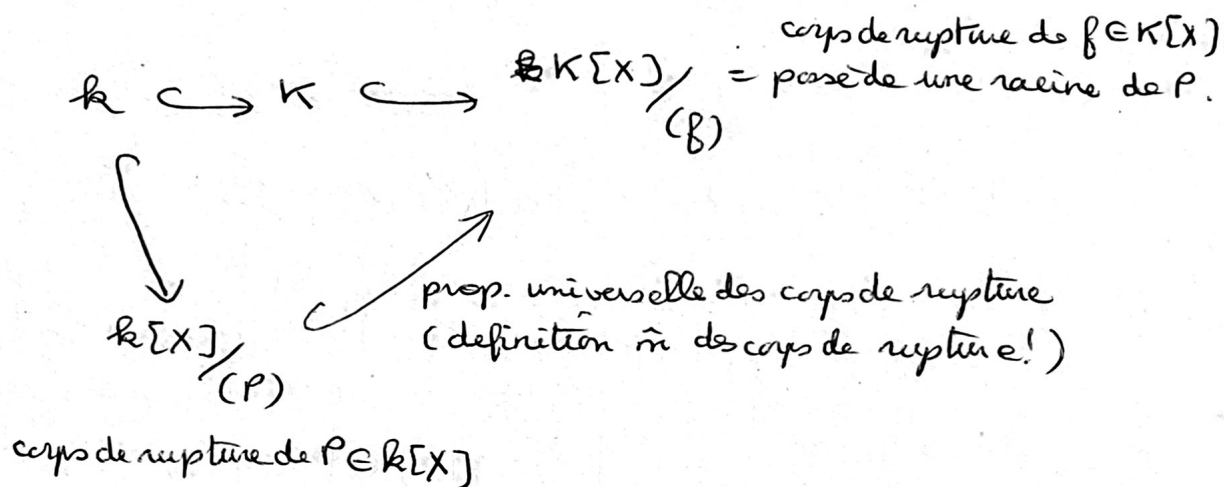 corps de rupture de f ∈ K[X]
k ↪ K ↪ K[X]/(f) = possède une racine de P.
prop. universelle des corps de rupture
(definition m̂ des corps de rupture!)
k[X]/(P)
corps de rupture de P ∈ k[X]